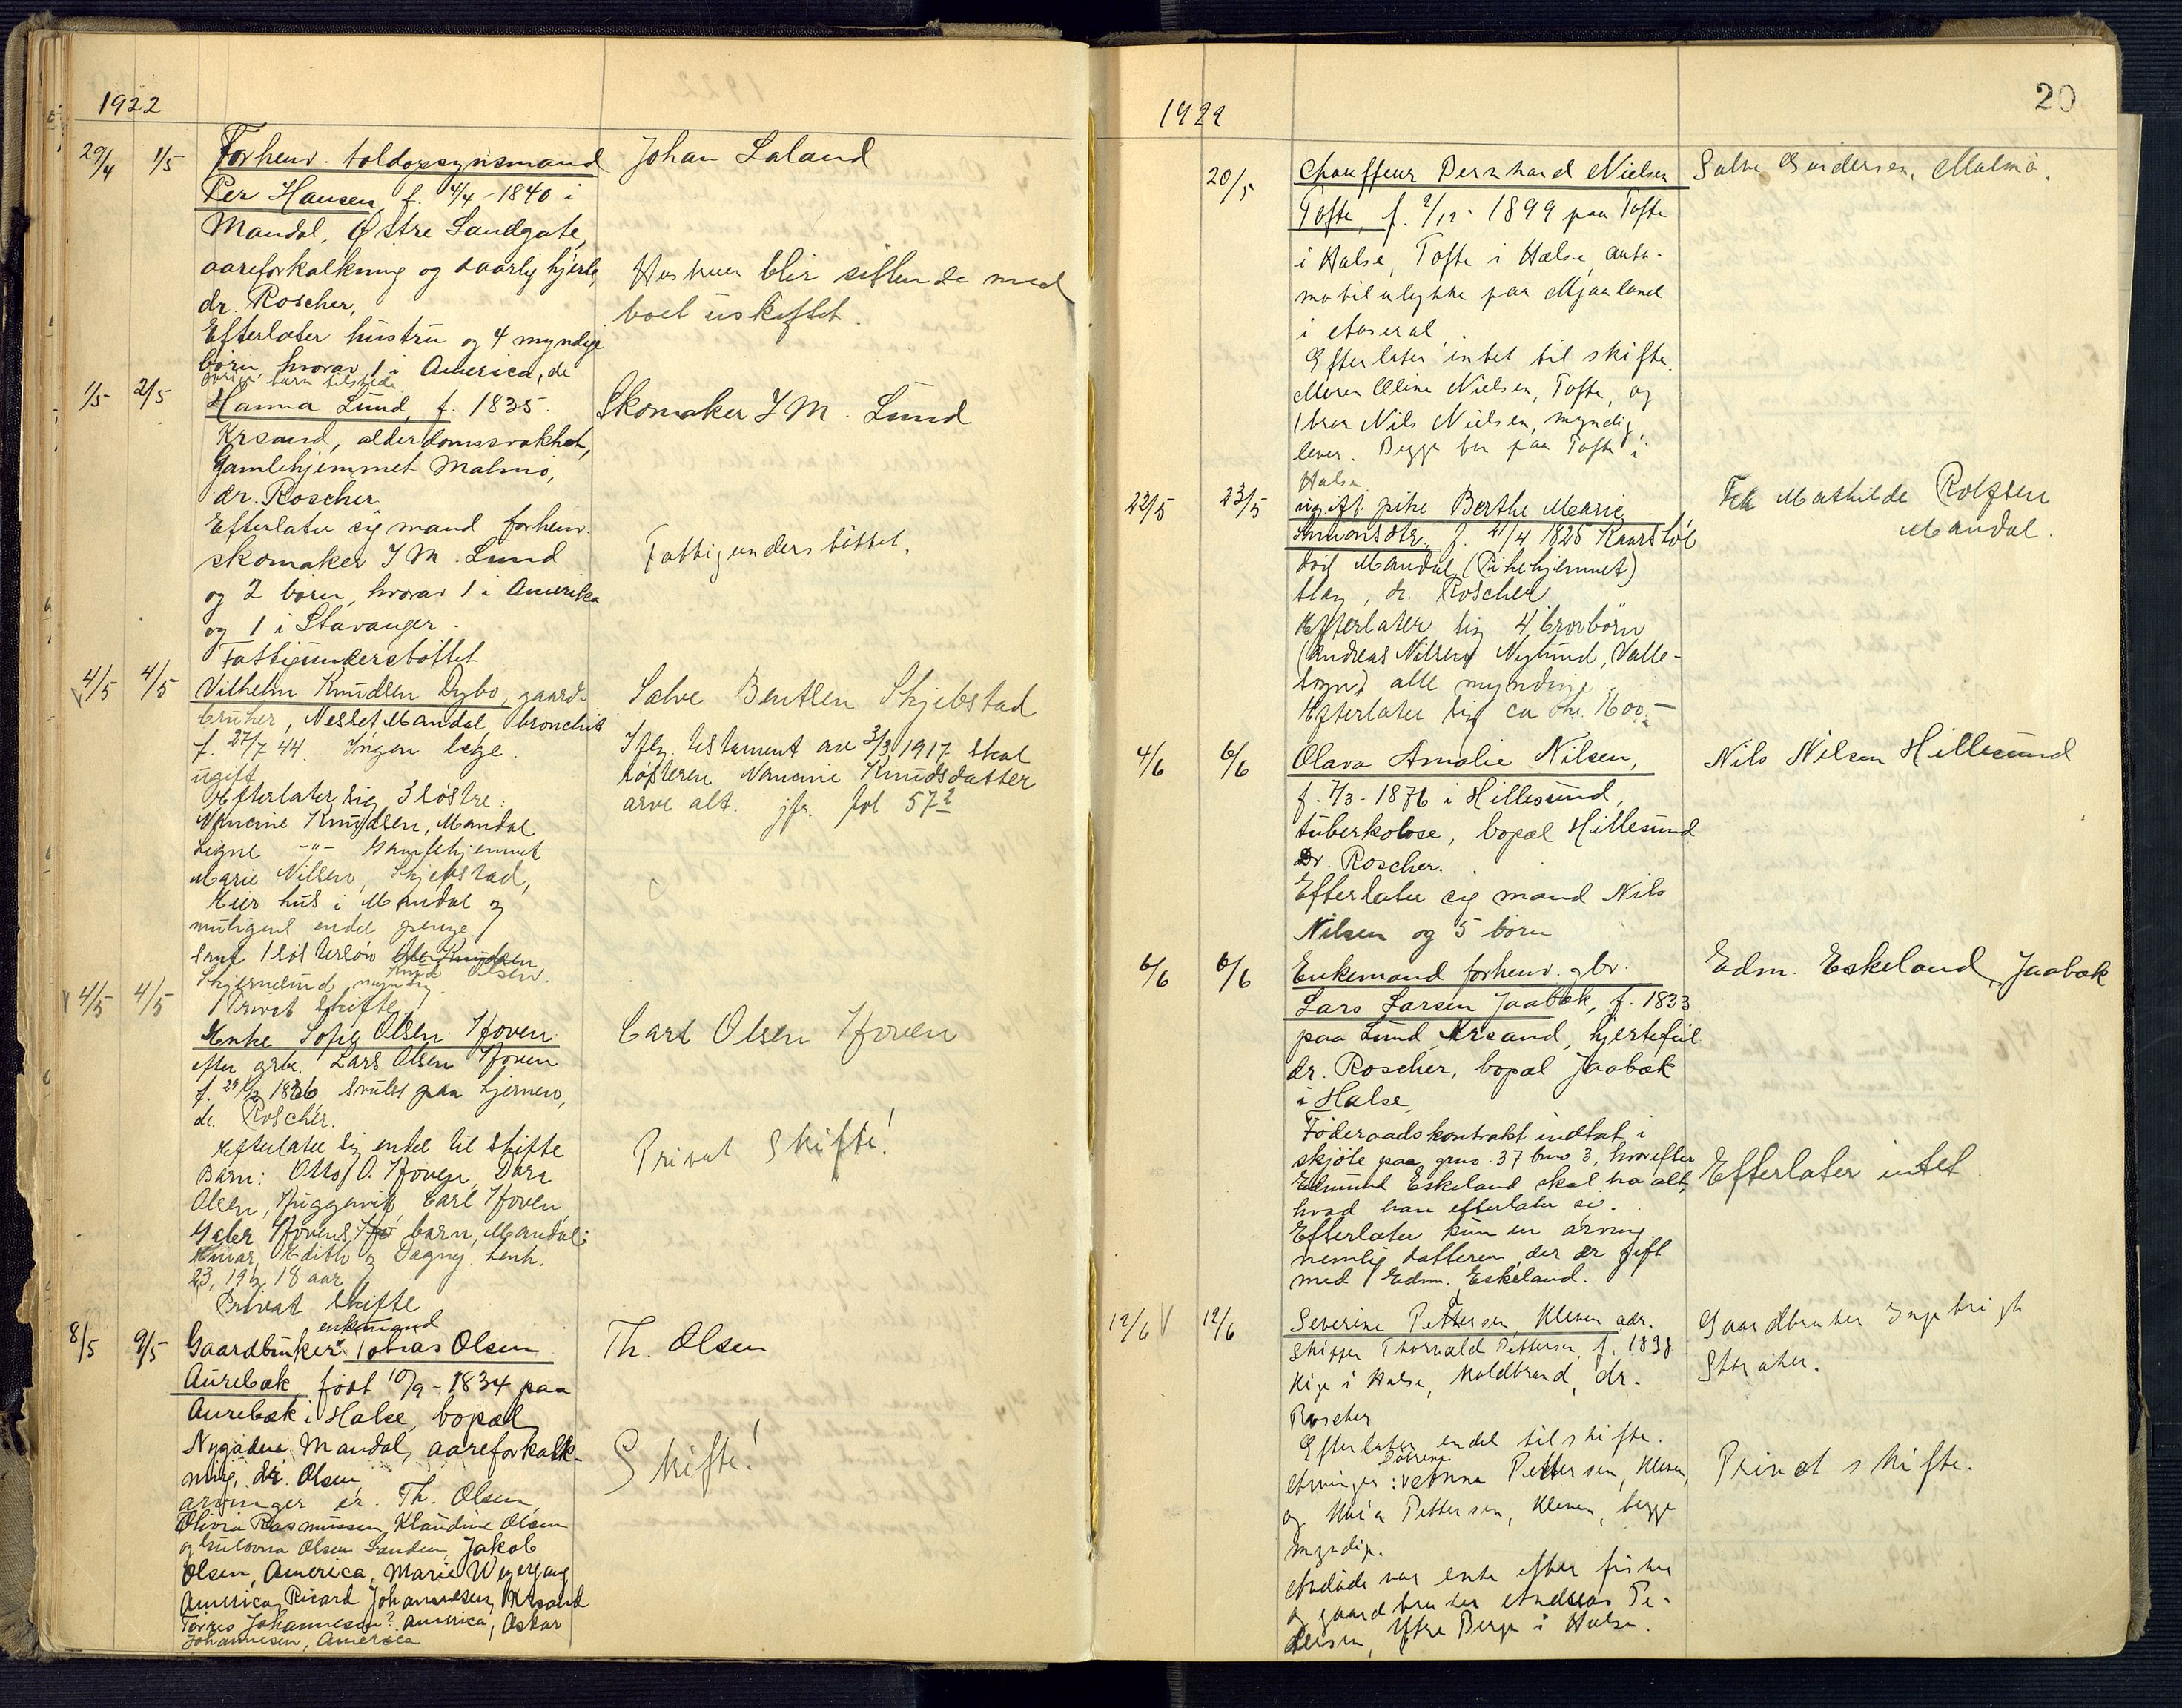 1922
29/4 1/5 Forhenv. toldopsynsmand Johan Laland
Per Hansen, f. 4/4-1840 i
Mandal, Østre Landgate,
aareforkalkning og daarlig hjerte,
dr. Roscher,
Hustruen blir sittende med
boet uskiftet.
Efterlater hustru og 4 myndige
børn, hvorav 1 i America, de
øvrige barn tilstede
1/5 2/5 Hanna Lund, f. 1835. Skomaker J M. Lund
Krsand, alderdomssvakhet,
Gamlehjemmet Malmø,
dr. Roscher
Efterlater sig mand forhenv.
skomaker J M. Lund
Fattigunderstøttet.
og 2 børn, hvorav 1 i Amerika
og 1 i Stavanger.
Fattigunderstøttet
4/5 4/5 Vilhelm Knudsen Dybo, gaard- Salve Bentsen Skjebstad
bruker, Nesset, Mandal, bronchit
f. 27/7 44. Ingen læge.
ugift
Ifølg. testament av 3/3 1917 skal
søsteren Nancine Knudsdatter
arve alt. jfr. fol 57
Efterlater sig 3 søstre:
Nancine Knudsen, Mandal
Signe -"- Gamlehjemmet
Marie Nilsen, Skjebstad,
Eier hus i Mandal og
muligens endel penge
samt 1 søstersøn Ole Knudsen
Knud Olsen
Skjernesund myndig.
Privat skifte
4/5 4/5 Enke Sofie Olsen Hoven Carl Olsen Hoven
efter grbr. Lars Olsen Hoven
f. svulst paa hjernen,
dr. Roscher.
Efterlater sig endel til skifte
Privat skifte!
Barn: Otto O. Hoven, Dora
Olsen, Carl Hoven,
Hovens barn, Mandal:
Einar, Edith og Dagny. henh.
23, 19 og 18 aar
Privat skifte
enkemand
8/5 9/5 Gaardbruker Tobias Olsen Th. Olsen
Aurebæk, født 10/9-1834 paa
Aurebæk i Halse, bopæl
Nygaden, Mandal, aareforkalk-
ning, dr. Olsen,
Skifte!
arvinger er. Th. Olsen,
Olivia Rasmussen, Klaudine Olsen
og Olsen Sanden, Jakob
Olsen, America, Marie
America, Ricard Johannesen, Krsand
Torres Johannesen? America, Oskar
Johannesen, America
1922
20
20/5 Chauffeur Bernhard Nielsen Salve Gundersen, Malmø.
Tofte, f. 2/12-1899 paa Tofte
i Halse, Tofte i Halse, auto-
mobilulykke paa Mjaaland
i Aaseral.
Efterlater intet til skifte.
Moren Oline Nielsen, Tofte, og
1 bror Nils Nielsen, myndig,
lever. Begge bor paa Tofte i
Halse.
22/5 23/5 ugift pike Berthe Marie Frk Mathilde Rolfsen
Mandal.
Simonsdtr. f. 21/4 1825 Kaarstøl
død Mandal, (Pikehjemmet)
slag, dr. Roscher
Efterlater sig 4 brorbørn
(Andreas Nilsen Nylund, Valle-
sogn) alle myndige.
Efterlater sig ca kr. 1600.-
4/6 6/6 Olava Amalie Nilsen, Nils Nilsen Hillesund
f. 7/3-1876 i Hillesund,
tuberkolose, bopæl Hillesund
Dr. Roscher.
Efterlater sig mand Nils
Nilsen og 5 børn
6/6 6/6 Enkemand forhenv. gbr. Edm. Eskeland, Jaabæk
Lars Larsen Jaabæk, f. 1833
paa Lund, Krsand, hjertefeil
dr. Roscher, bopæl Jaabæk
i Halse,
Føderaadskontrakt indtat i
skjøte paa gno. 37 bno 3, hvorefter
Edmund Eskeland skal ha alt, Efterlater intet.
hvad han efterlater si.
Efterlater kun en arving
nemlig datteren, der er gift
med Edm. Eskeland.
12/6 12/6 Severine Pettersen, Kleven adr. Gaardbruker Ingebrigt
skipper Thorvald Pettersen, f. 1838
i Halse, koldbrand, dr.
Roscher
Efterlater endel til skifte.
Døtrene
Arvinger: Anna Pettersen, Kleven, Privat skifte.
og Maria Pettersen, Kleven, begge
myndige.
Avdøde var enke efter fisker
og gaardbruker Andreas Pe-
dersen, Ytre Berge i Halse.